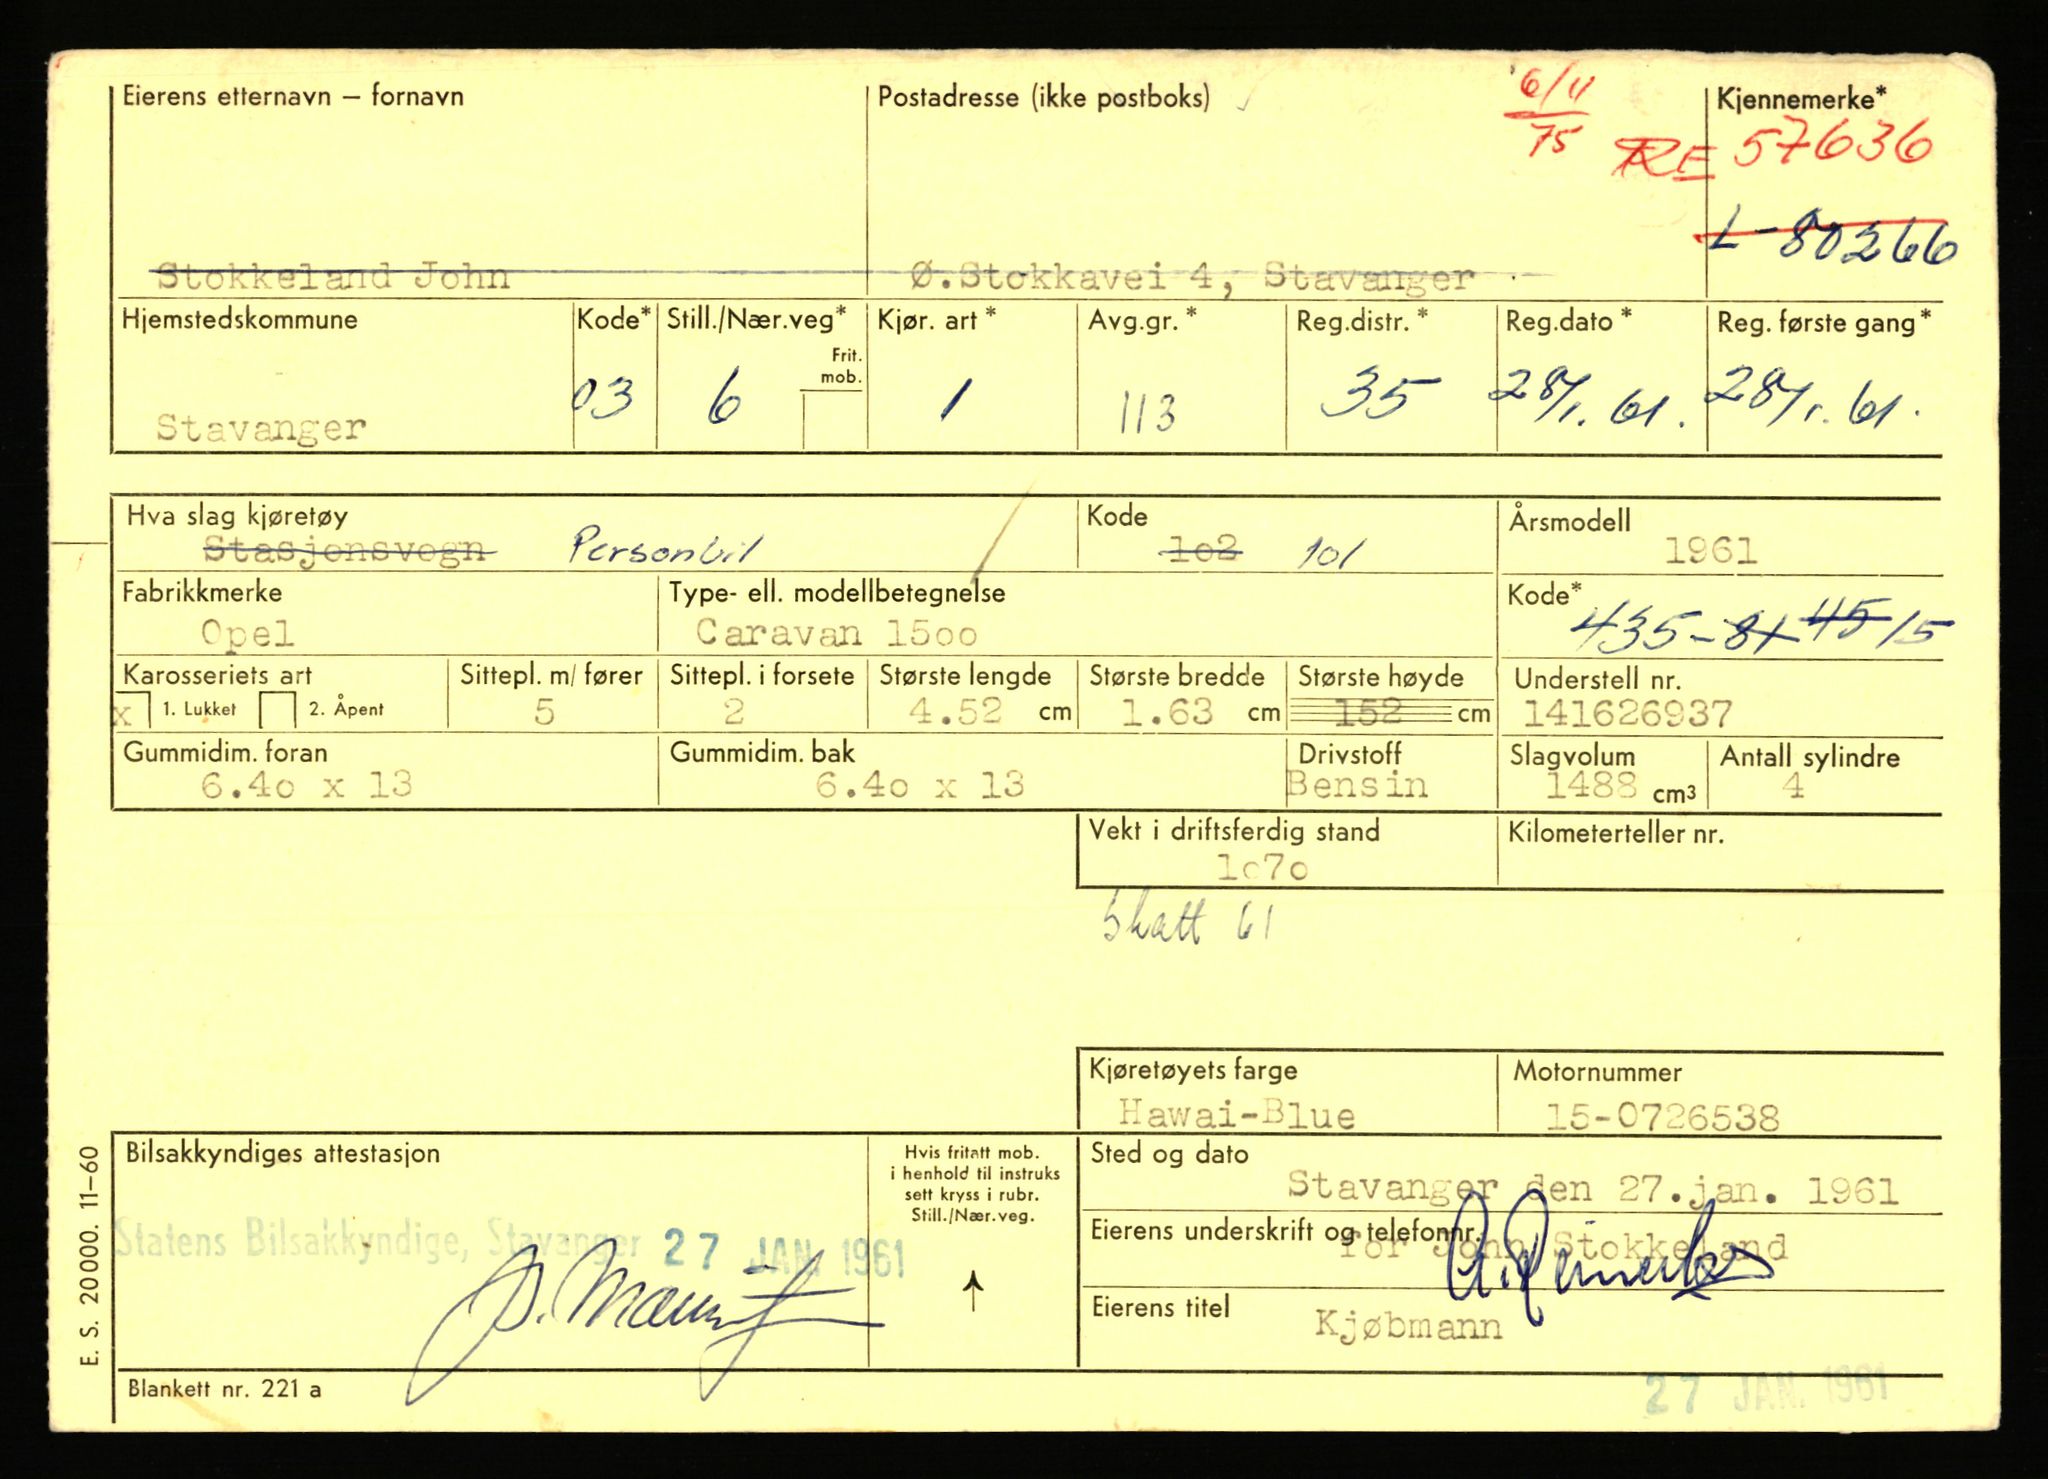 Eierens etternavn – fornavn
Postadresse (ikke postboks)
6/11
75
Kjennemerke*
RE 57636
L-80266
Stokkeland John
Ø.Stokkavei 4, Stavanger
Hjemstedskommune
Kode*
Still./Nær.veg*
Kjør. art *
Avg.gr. *
Reg.distr. *
Reg.dato *
Reg. første gang*
Frit.
mob.
Stavanger
03
6
1
113
35
28/1. 61.
28/1. 61.
Hva slag kjøretøy
Kode
Årsmodell
Stasjonsvogn Personbil
1o2 101
1961
Fabrikkmerke
Type- ell. modellbetegnelse
Kode*
Opel
Caravan 15oo
435-81 45 15
Karosseriets art
Sittepl. m/ fører
Sittepl. i forsete
Største lengde
Største bredde
Største høyde
Understell nr.
x 1. Lukket 2. Åpent
5
2
4.52 cm
1.63 cm
152 cm
141626937
Gummidim. foran
Gummidim. bak
Drivstoff
Slagvolum
Antall sylindre
6.4o x 13
6.4o x 13
Bensin
1488 cm3
4
Vekt i driftsferdig stand
Kilometerteller nr.
1o7o
Skatt 61
Kjøretøyets farge
Motornummer
Hawai-Blue
15-0726538
Bilsakkyndiges attestasjon
Hvis fritatt mob.
i henhold til instruks
sett kryss i rubr.
Still./Nær.veg.
Sted og dato
Stavanger den 27.jan. 1961
Statens Bilsakkyndige, Stavanger 27 JAN. 1961
Eierens underskrift og telefonnr.
for John Stokkeland
Eierens titel
Kjøbmann
E. S. 20000. 11–60
Blankett nr. 221 a
27 JAN. 1961